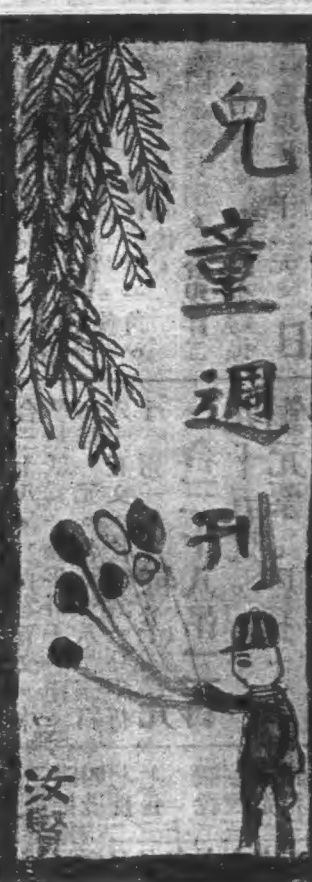 兒童週刊
汝